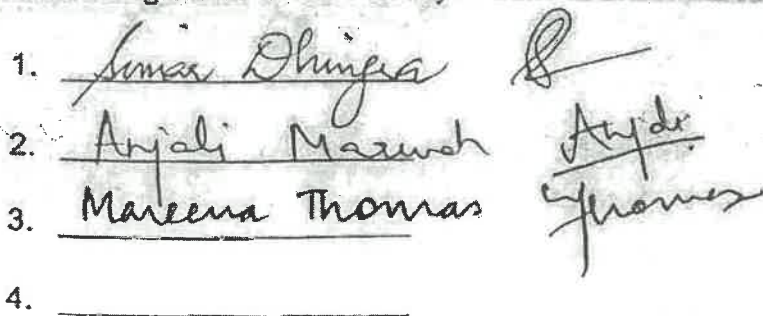 1. Simar Dhingra
2. Anjali Marwah Anjali
3. Mareena Thomas Thomas
4.